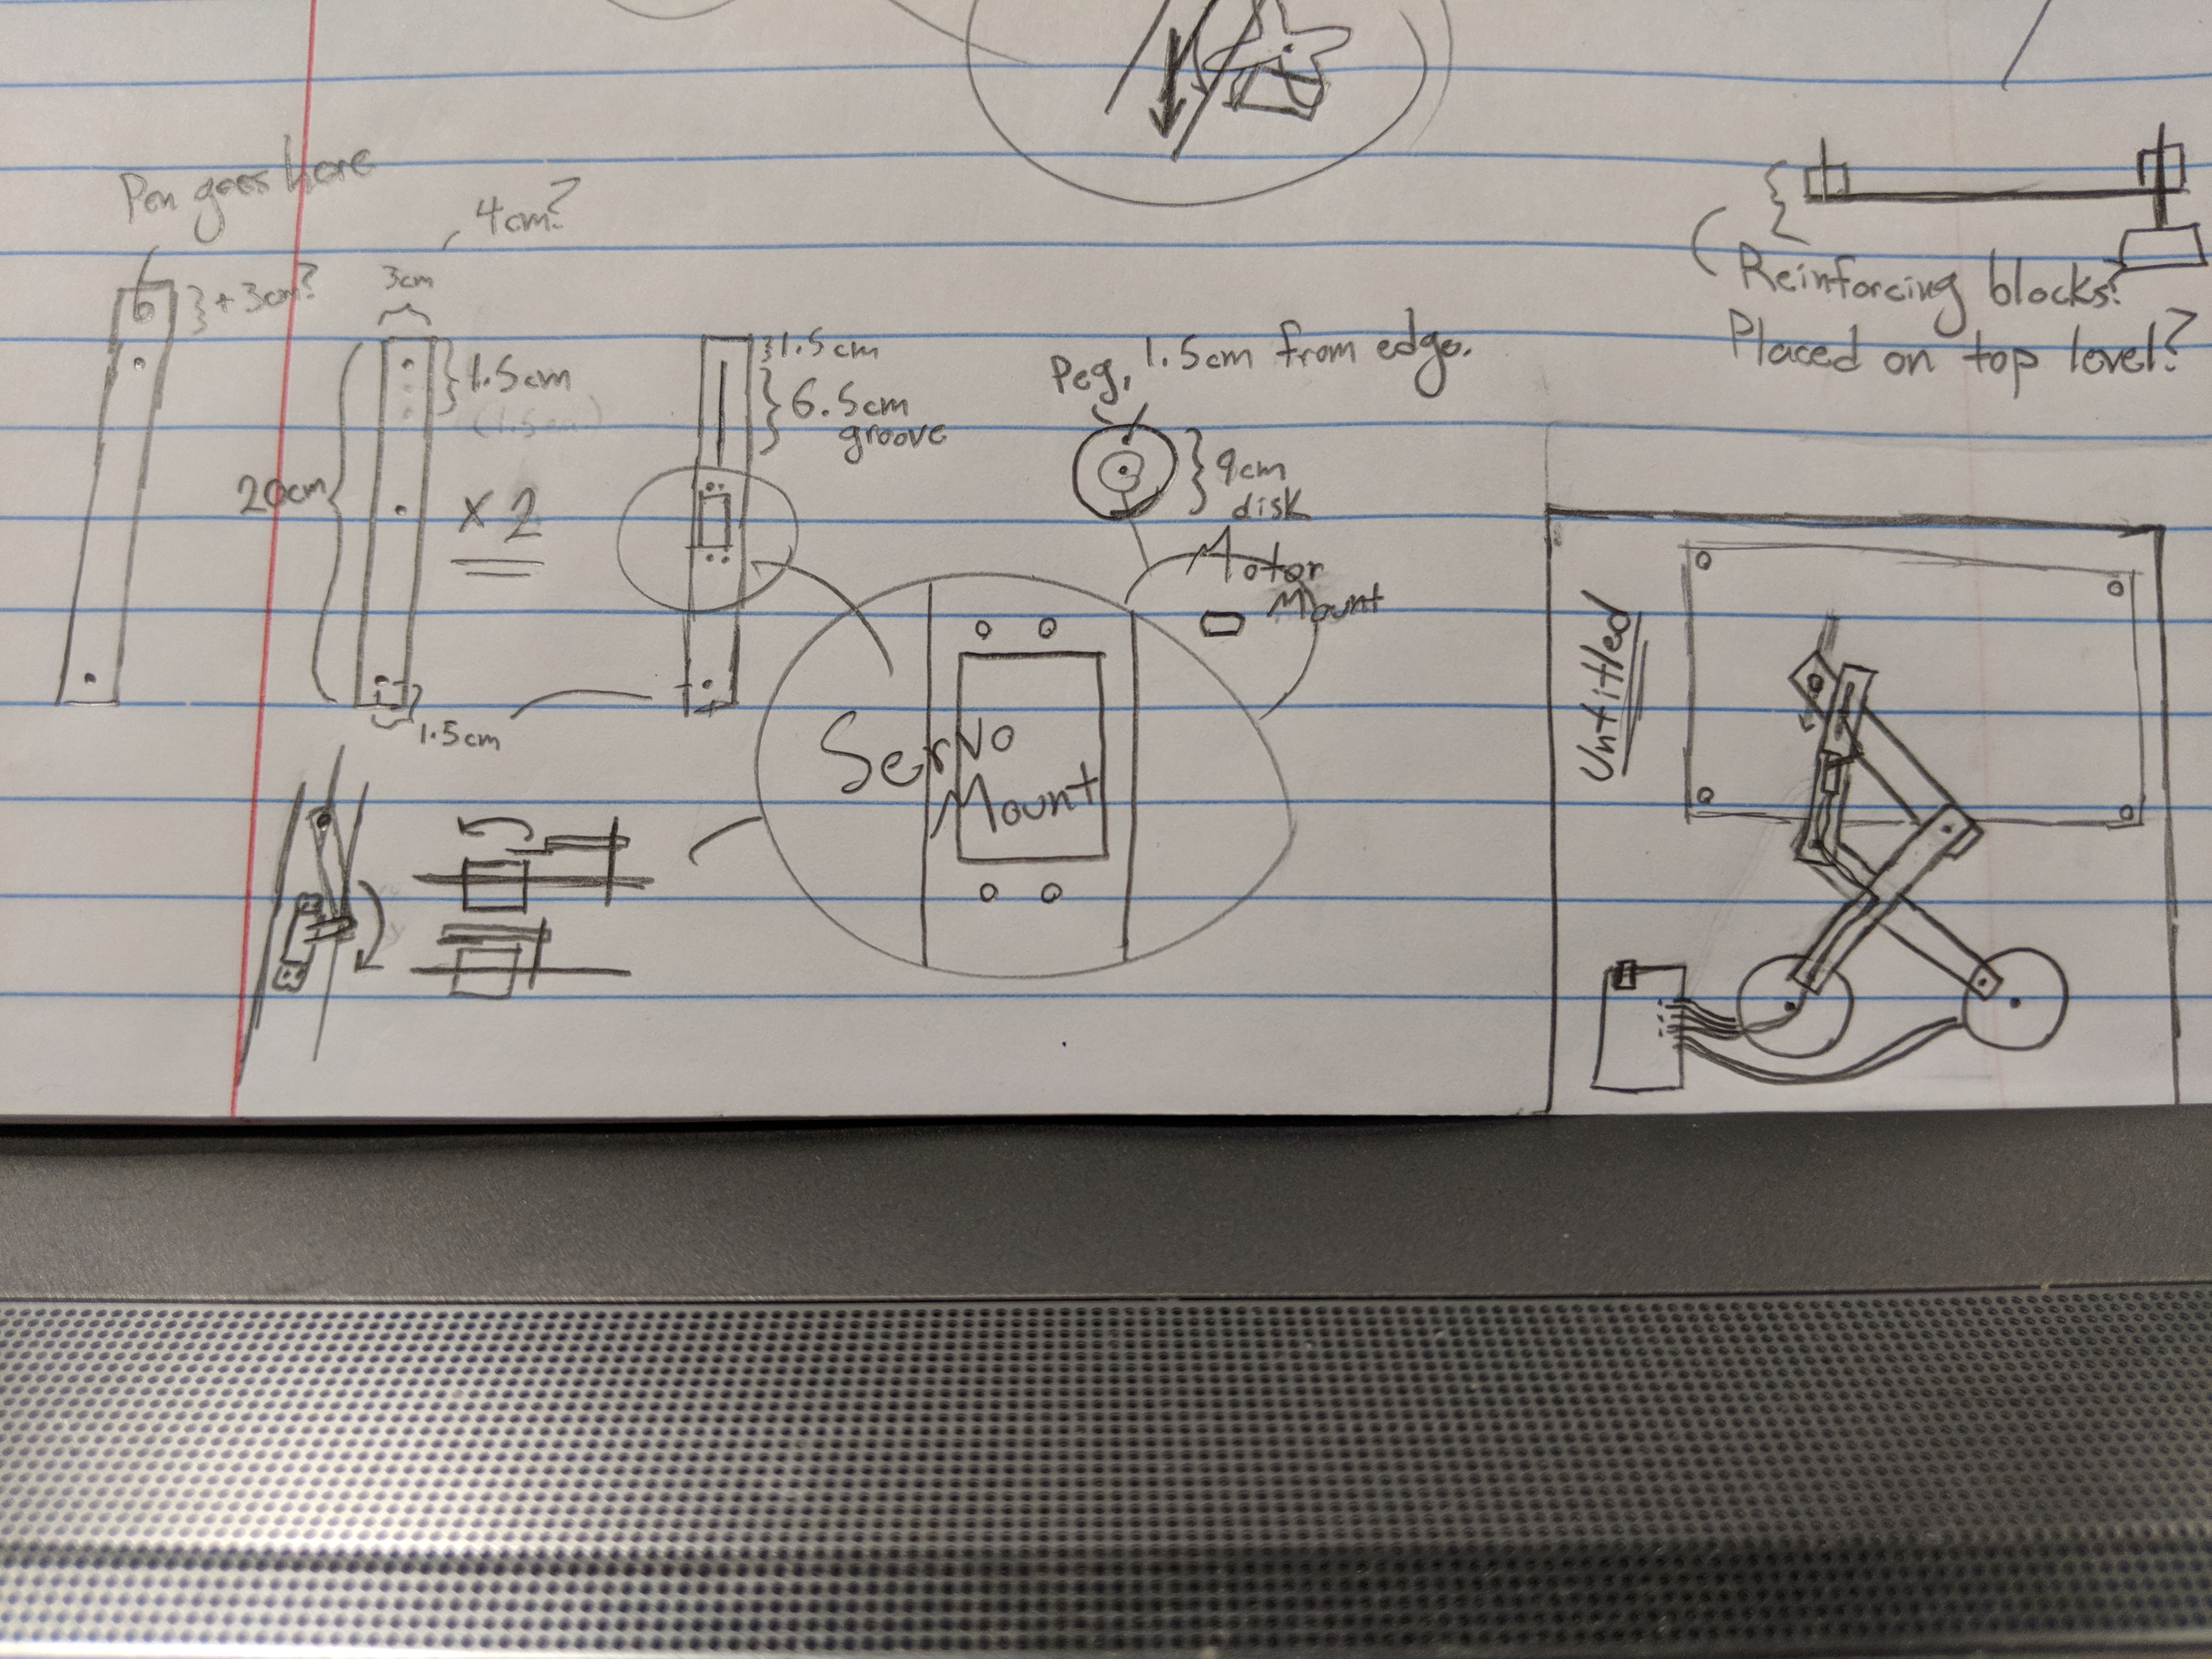 Pen goes here
4cm?
+3cm?
3cm
1.5cm
(1.5cm)
20cm
x 2
1.5cm
1.5cm
6.5cm
groove
Peg, 1.5cm from edge.
9cm
disk
Motor
Mount
Servo
Mount
Reinforcing blocks?
Placed on top level?
Untitled